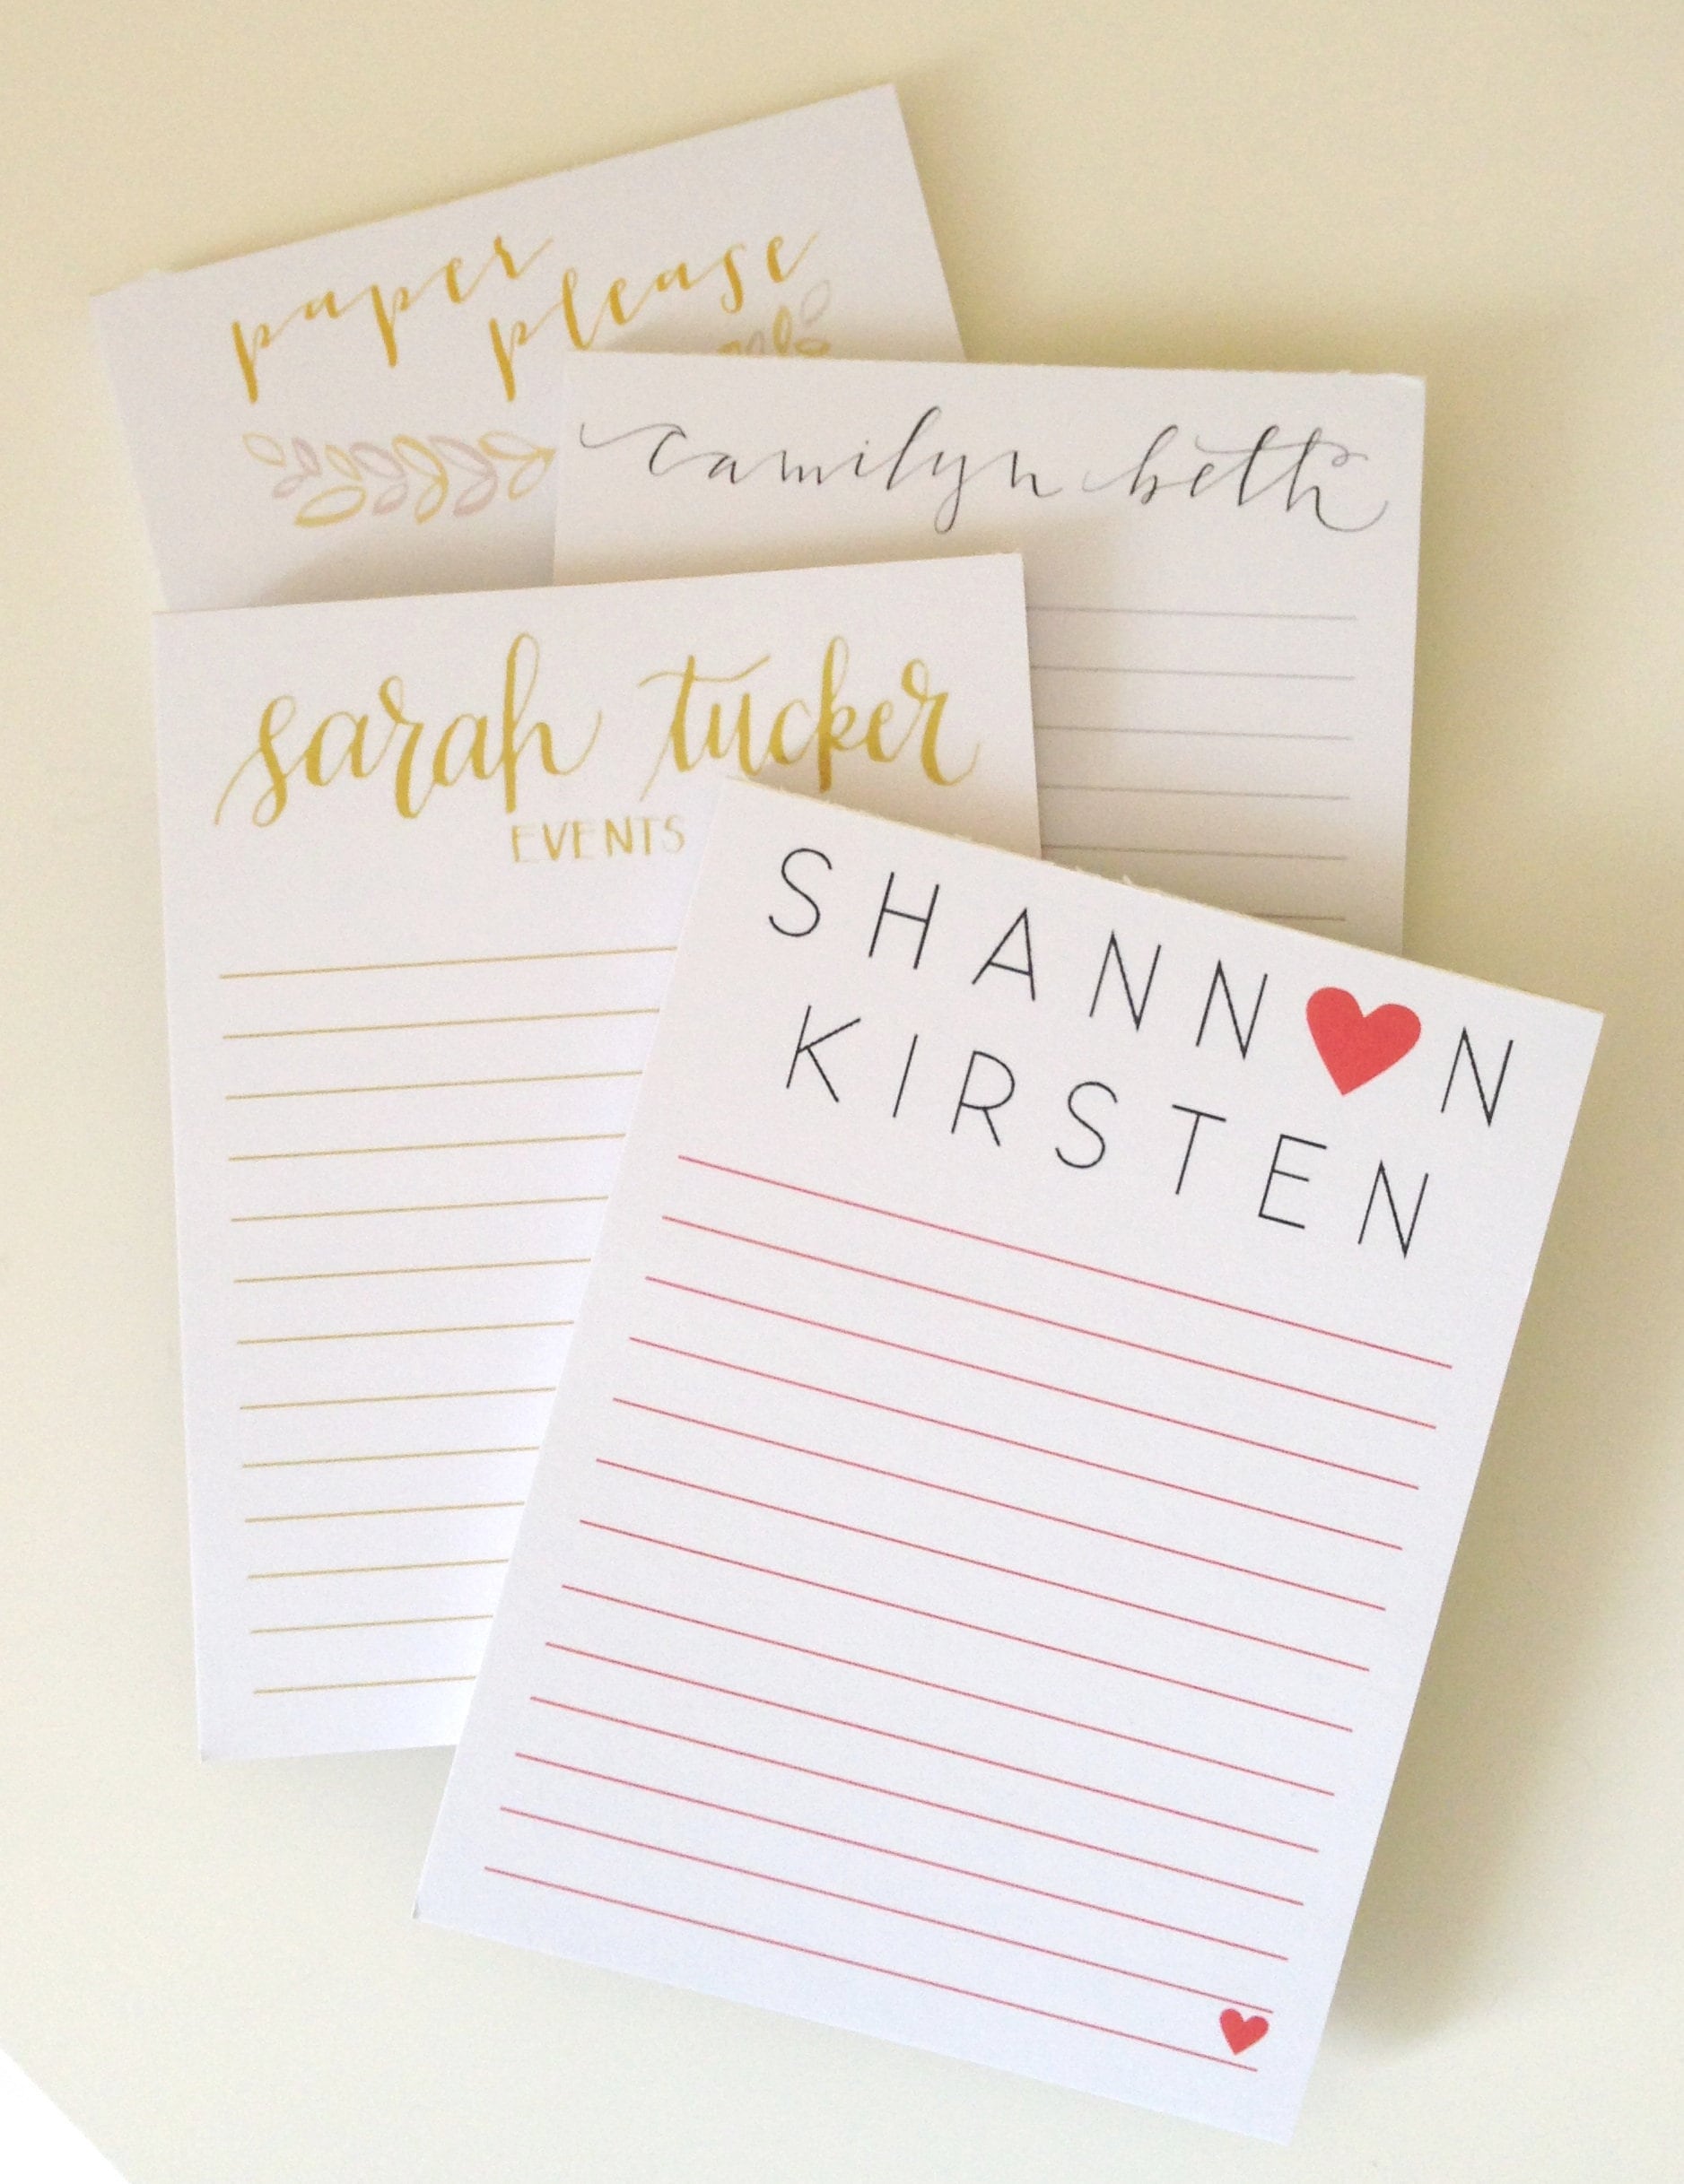 paper
please
camilyn beth
sarah tucker
EVENTS
SHANN❤N
KIRSTEN